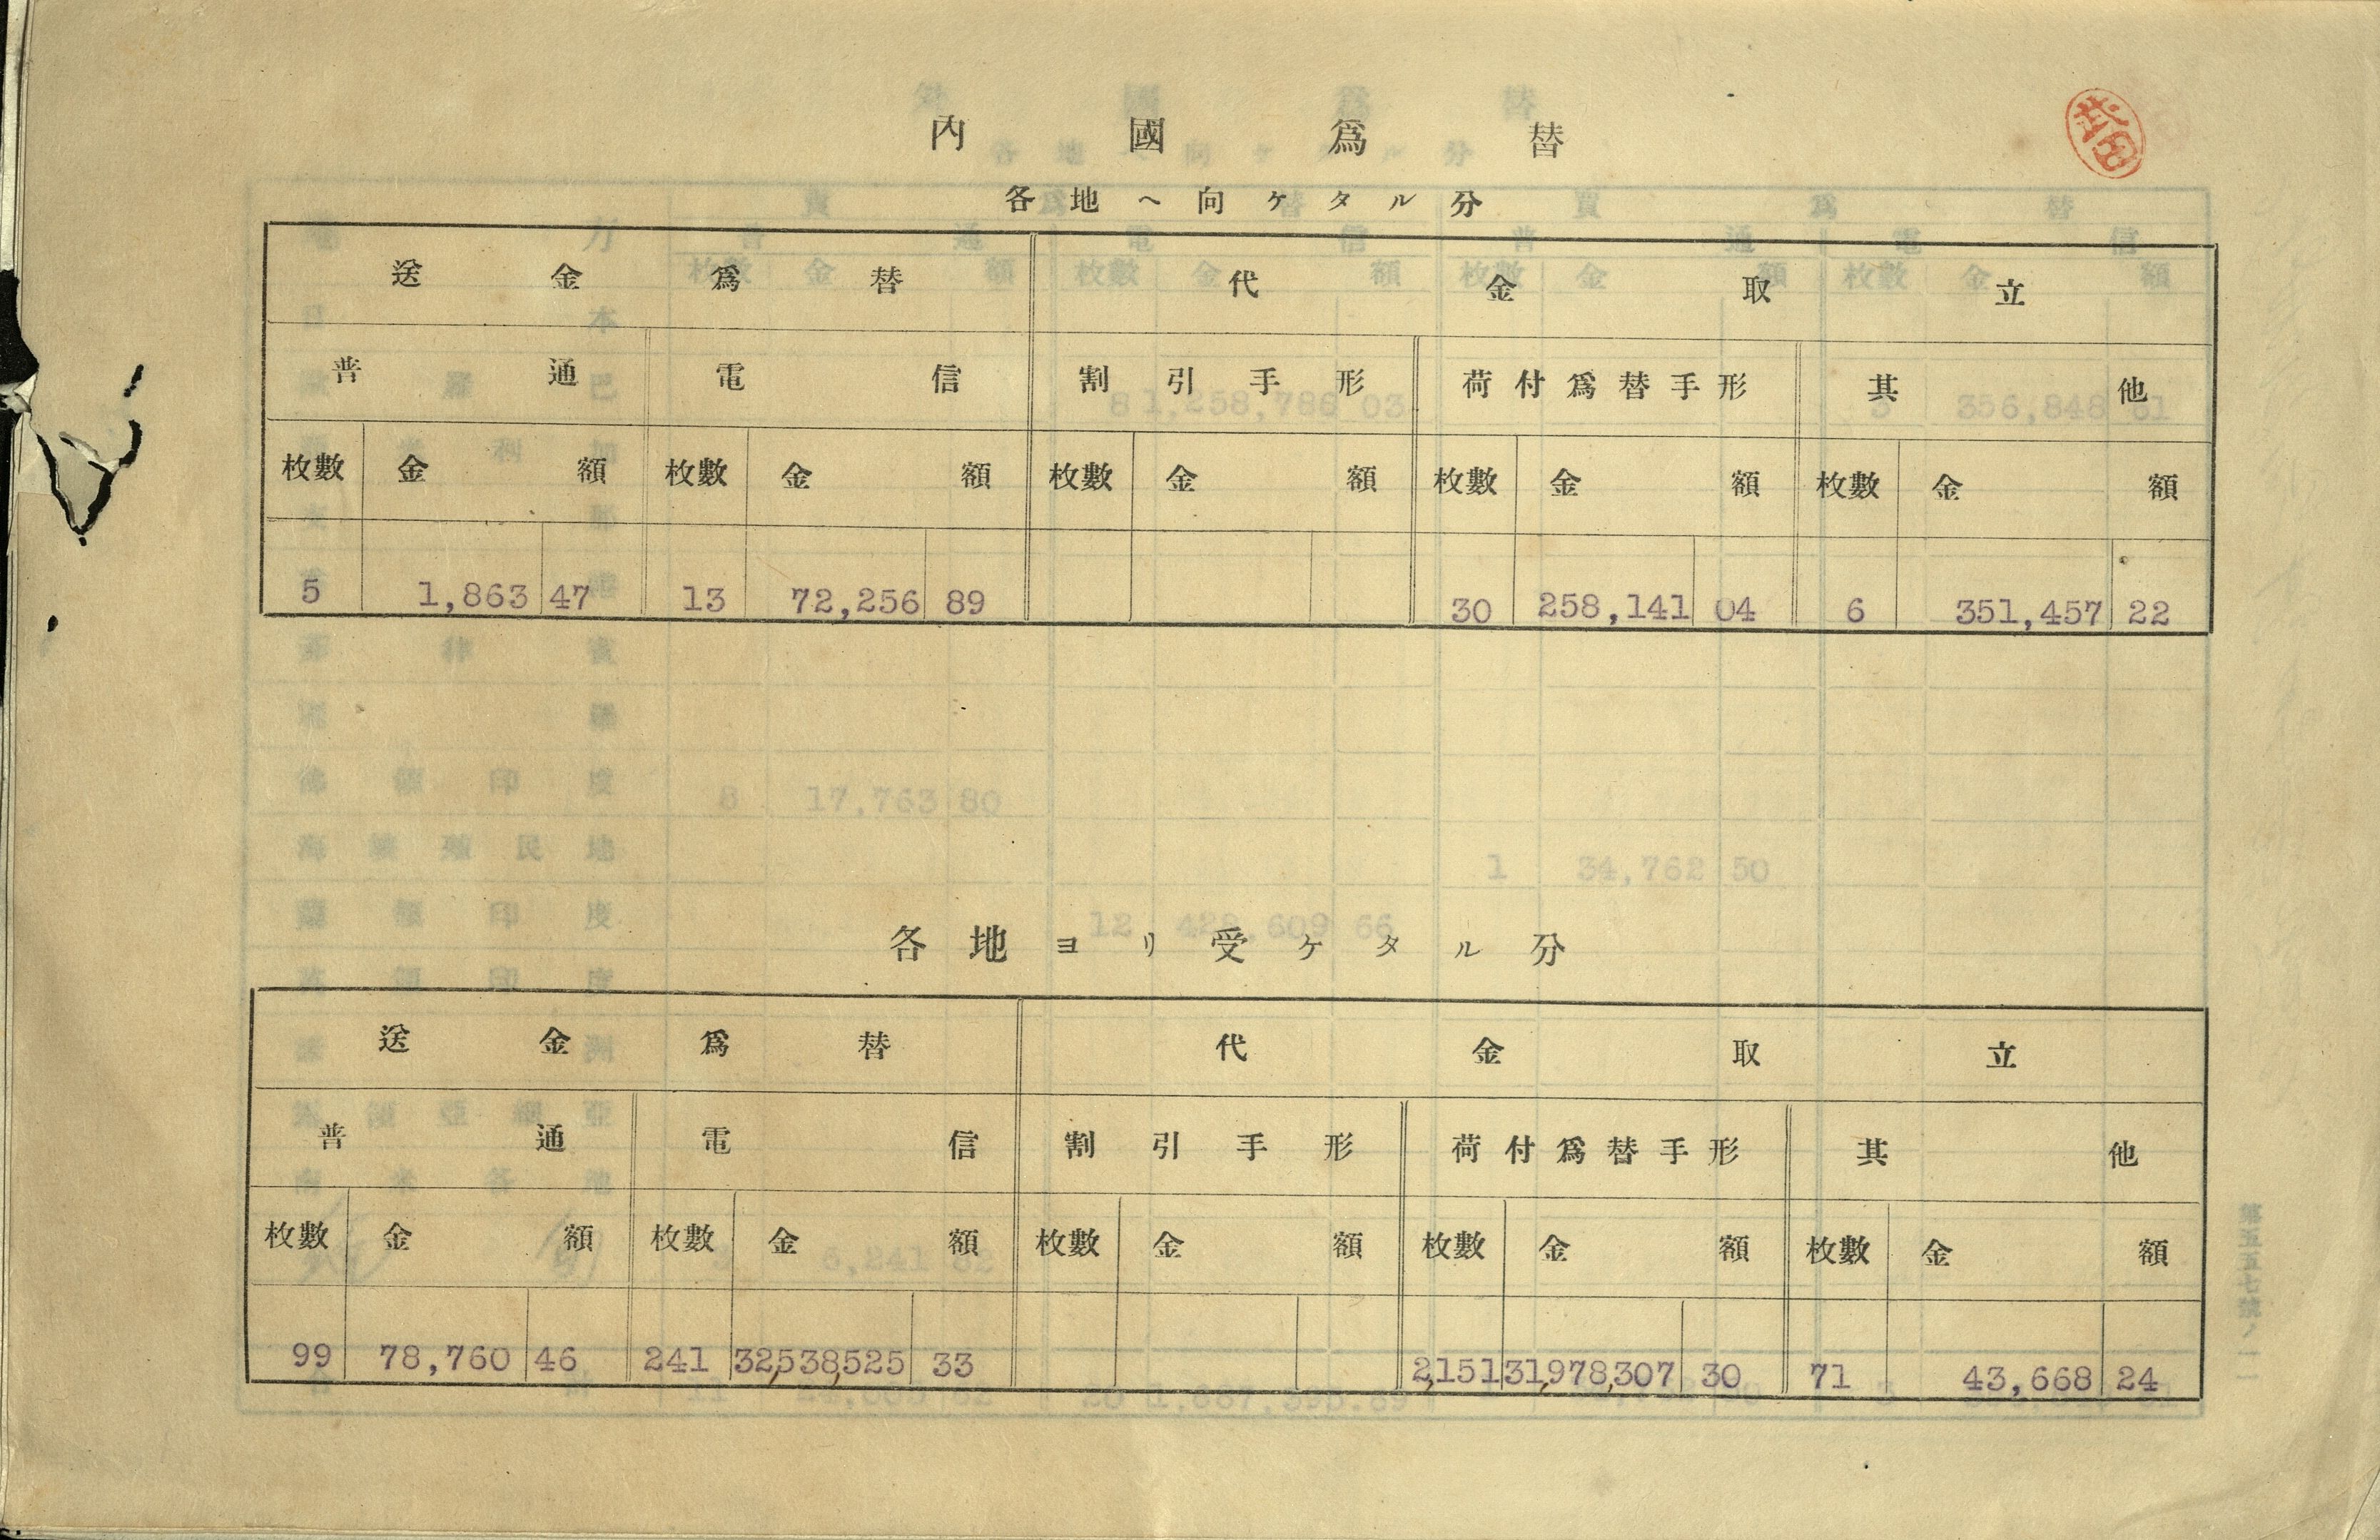 內國爲替
各地ヘ向ケタル分
送金爲替 代金取立
普通 電信 割引手形 荷付爲替手形 其他
枚數 金額 枚數 金額 枚數 金額 枚數 金額 枚數 金額
5 1,863 47 13 72,256 89 30 258,141 04 6 351,457 22
各地ヨリ受ケタル分
送金爲替 代金取立
普通 電信 割引手形 荷付爲替手形 其他
枚數 金額 枚數 金額 枚數 金額 枚數 金額 枚數 金額
99 78,760 46 241 32,538,525 33 2,151 31,978,307 30 71 43,668 24